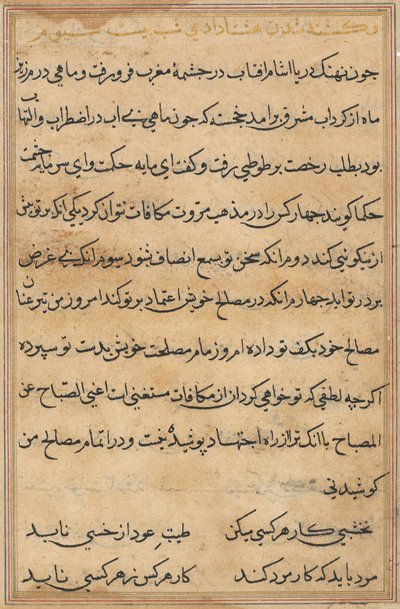 و کشته شدن عشاق دادی شب بیست سیوم
چون نهنک دریا آشام افتاب در چشمهٔ مغرب فرو رفت و ماهی در مزین
ماه از کرداب مشرق برآمد خجسته که چون ماهی بی اب در اضطراب و التهاب
بود بطلب رخصت بر طوطی رفت و کفت ای مایه حکمت و ای سرمایه حشمت
حکما کویند چهار کس را در مذهب مروت مکافات نتوان کرد یکی انکه بر تو پیش
از نیکوئی کند دوم انکه سخن تو بسمع انصاف شنود سیوم انکه بی غرض
بر در تو اید چهارم انکه در مصالح خویش اعتماد بر تو کند امروز من نیز عنان
مصالح خود بکف تو داده ام و زمام مصلحت خویش بدست تو سپرده
اکرچه لطفی که تو خواهی کرد ان از مکافات مستغنی است اغنی الصباح عن
المصباح با انکه تو از راه اجتهاد پوشیده نیست و در اتمام مصالح من
کوشیدنی
نخشبی کار هر کسی میکن طیبت عود از خسی ناید
مرد باید که کار مرد کند کار هر کس ز هر کسی ناید